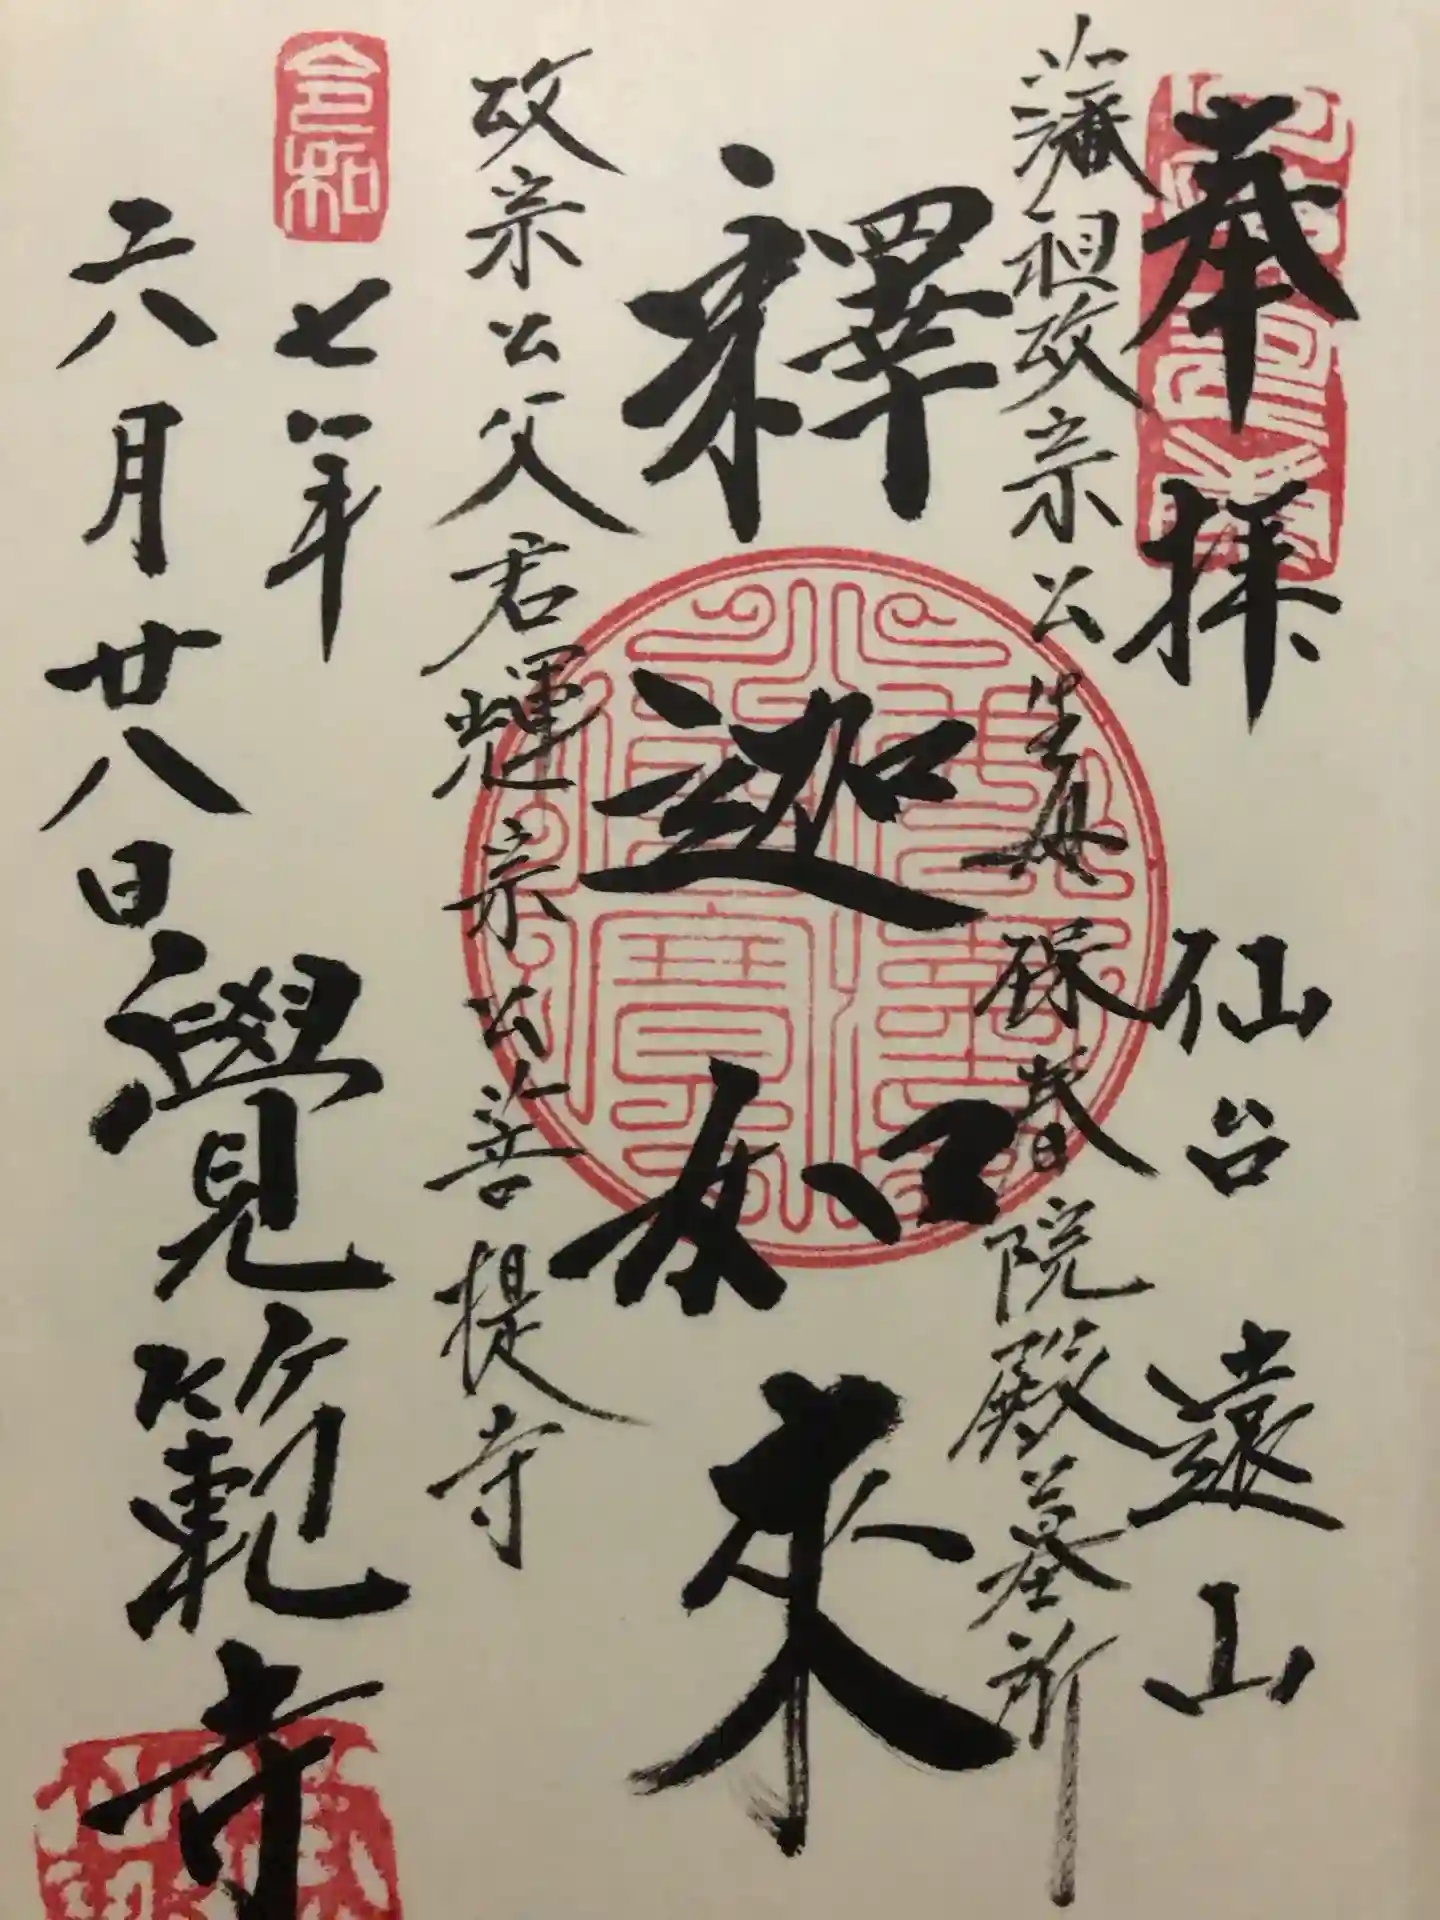 奉拝 仙台 遠山
藩祖政宗公 生母 保春院殿墓所
釋迦如来
政宗公父君輝宗公菩提寺
令和七年
六月廿八日
覺範寺